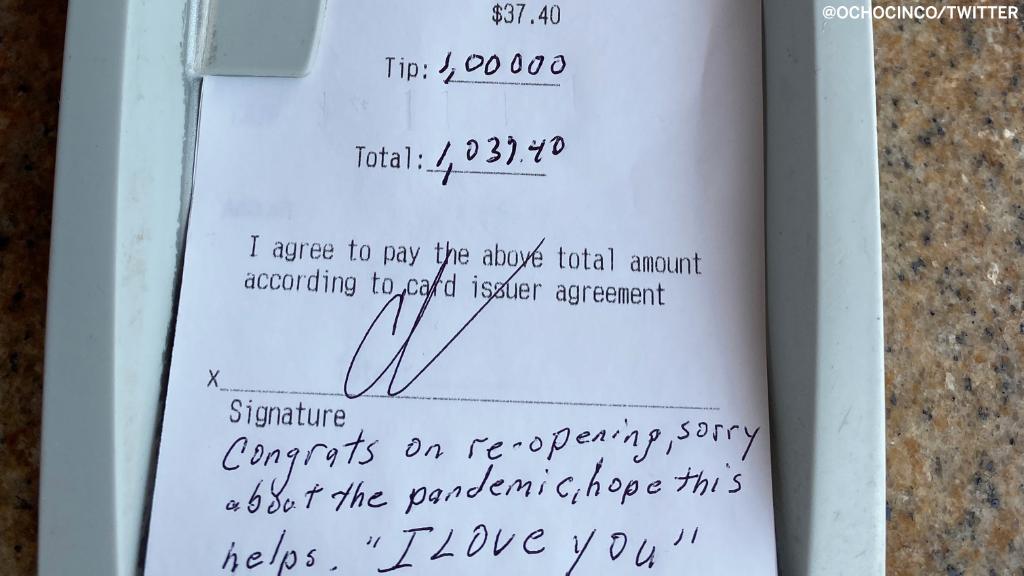 @OCHOCINCO/TWITTER
$37.40
Tip: 1,00000
Total: 1,037.40
I agree to pay the above total amount
according to card issuer agreement
X
Signature
Congrats on re-opening, sorry
about the pandemic, hope this
helps. "I LOVE you"